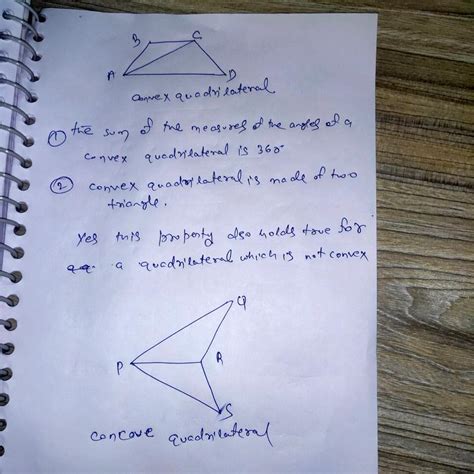 B C
A D
convex quadrilateral
① The sum of the measures of the angles of a
convex quadrilateral is 360°
② convex quadrilateral is made of two
triangle.
Yes this property also holds true for
a quadrilateral which is not convex
Q
P R
S
concove quadrilateral